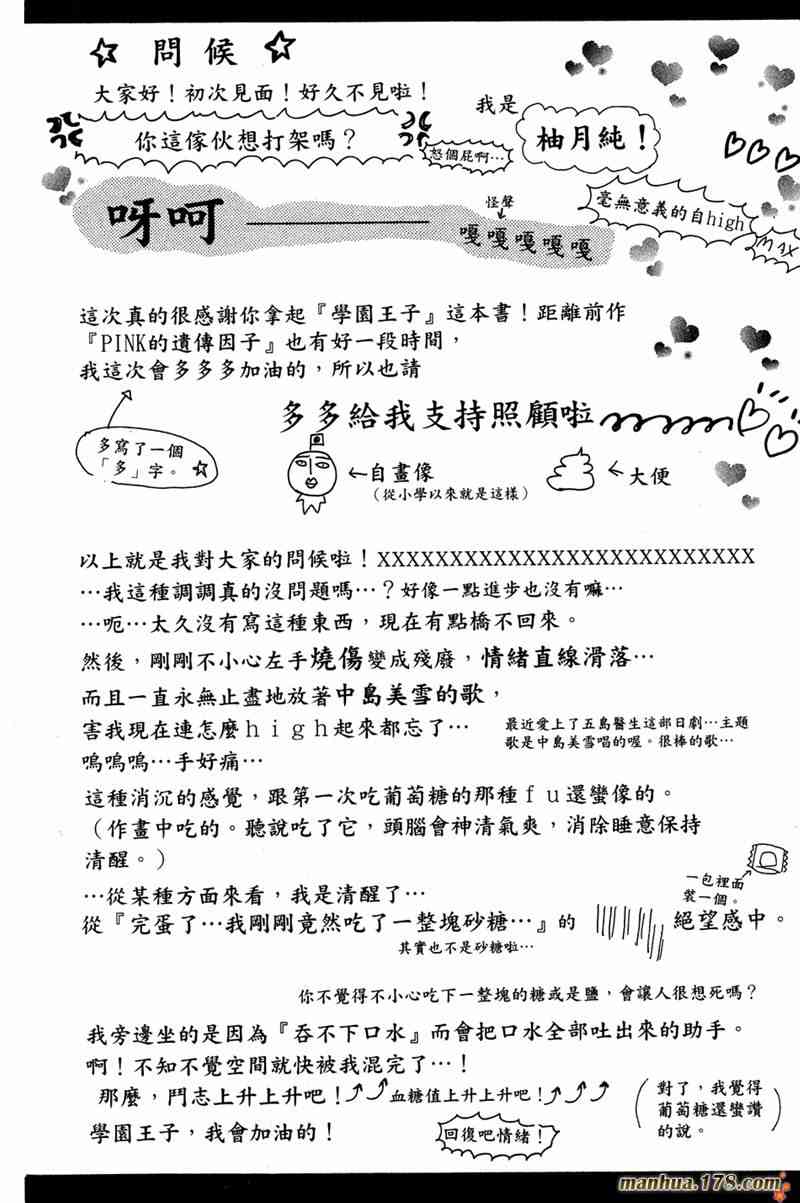 ☆ 問候 ☆
大家好！初次見面！好久不見啦！
你這傢伙想打架嗎？
怒個屁啊…
我是
柚月純！
毫無意義的自high
MAX
呀呵————
怪聲
嘎嘎嘎嘎嘎
這次真的很感謝你拿起『學園王子』這本書！距離前作
『PINK的遺傳因子』也有好一段時間，
我這次會多多多加油的，所以也請
多多給我支持照顧啦
多寫了一個
「多」字。☆
←自畫像
（從小學以來就是這樣）
←大便
以上就是我對大家的問候啦！XXXXXXXXXXXXXXXXXXXXXXXXXX
…我這種調調真的沒問題嗎…？好像一點進步也沒有嘛…
…呃…太久沒有寫這種東西，現在有點橋不回來。
然後，剛剛不小心左手燒傷變成殘廢，情緒直線滑落…
而且一直永無止盡地放著中島美雪的歌，
害我現在連怎麼ｈｉｇｈ起來都忘了…
最近愛上了五島醫生這部日劇…主題
歌是中島美雪唱的喔。很棒的歌…
嗚嗚嗚…手好痛…
這種消沉的感覺，跟第一次吃葡萄糖的那種ｆｕ還蠻像的。
（作畫中吃的。聽說吃了它，頭腦會神清氣爽，消除睡意保持
清醒。）
…從某種方面來看，我是清醒了…
一包裡面
裝一個。
從『完蛋了…我剛剛竟然吃了一整塊砂糖…』的
絕望感中。
其實也不是砂糖啦…
你不覺得不小心吃下一整塊的糖或是鹽，會讓人很想死嗎？
我旁邊坐的是因為『吞不下口水』而會把口水全部吐出來的助手。
啊！不知不覺空間就快被我混完了…！
那麼，鬥志上升上升吧！
血糖值上升上升吧！
（對了，我覺得
葡萄糖還蠻讚
的說。）
學園王子，我會加油的！
回復吧情緒！
manhua.178.com